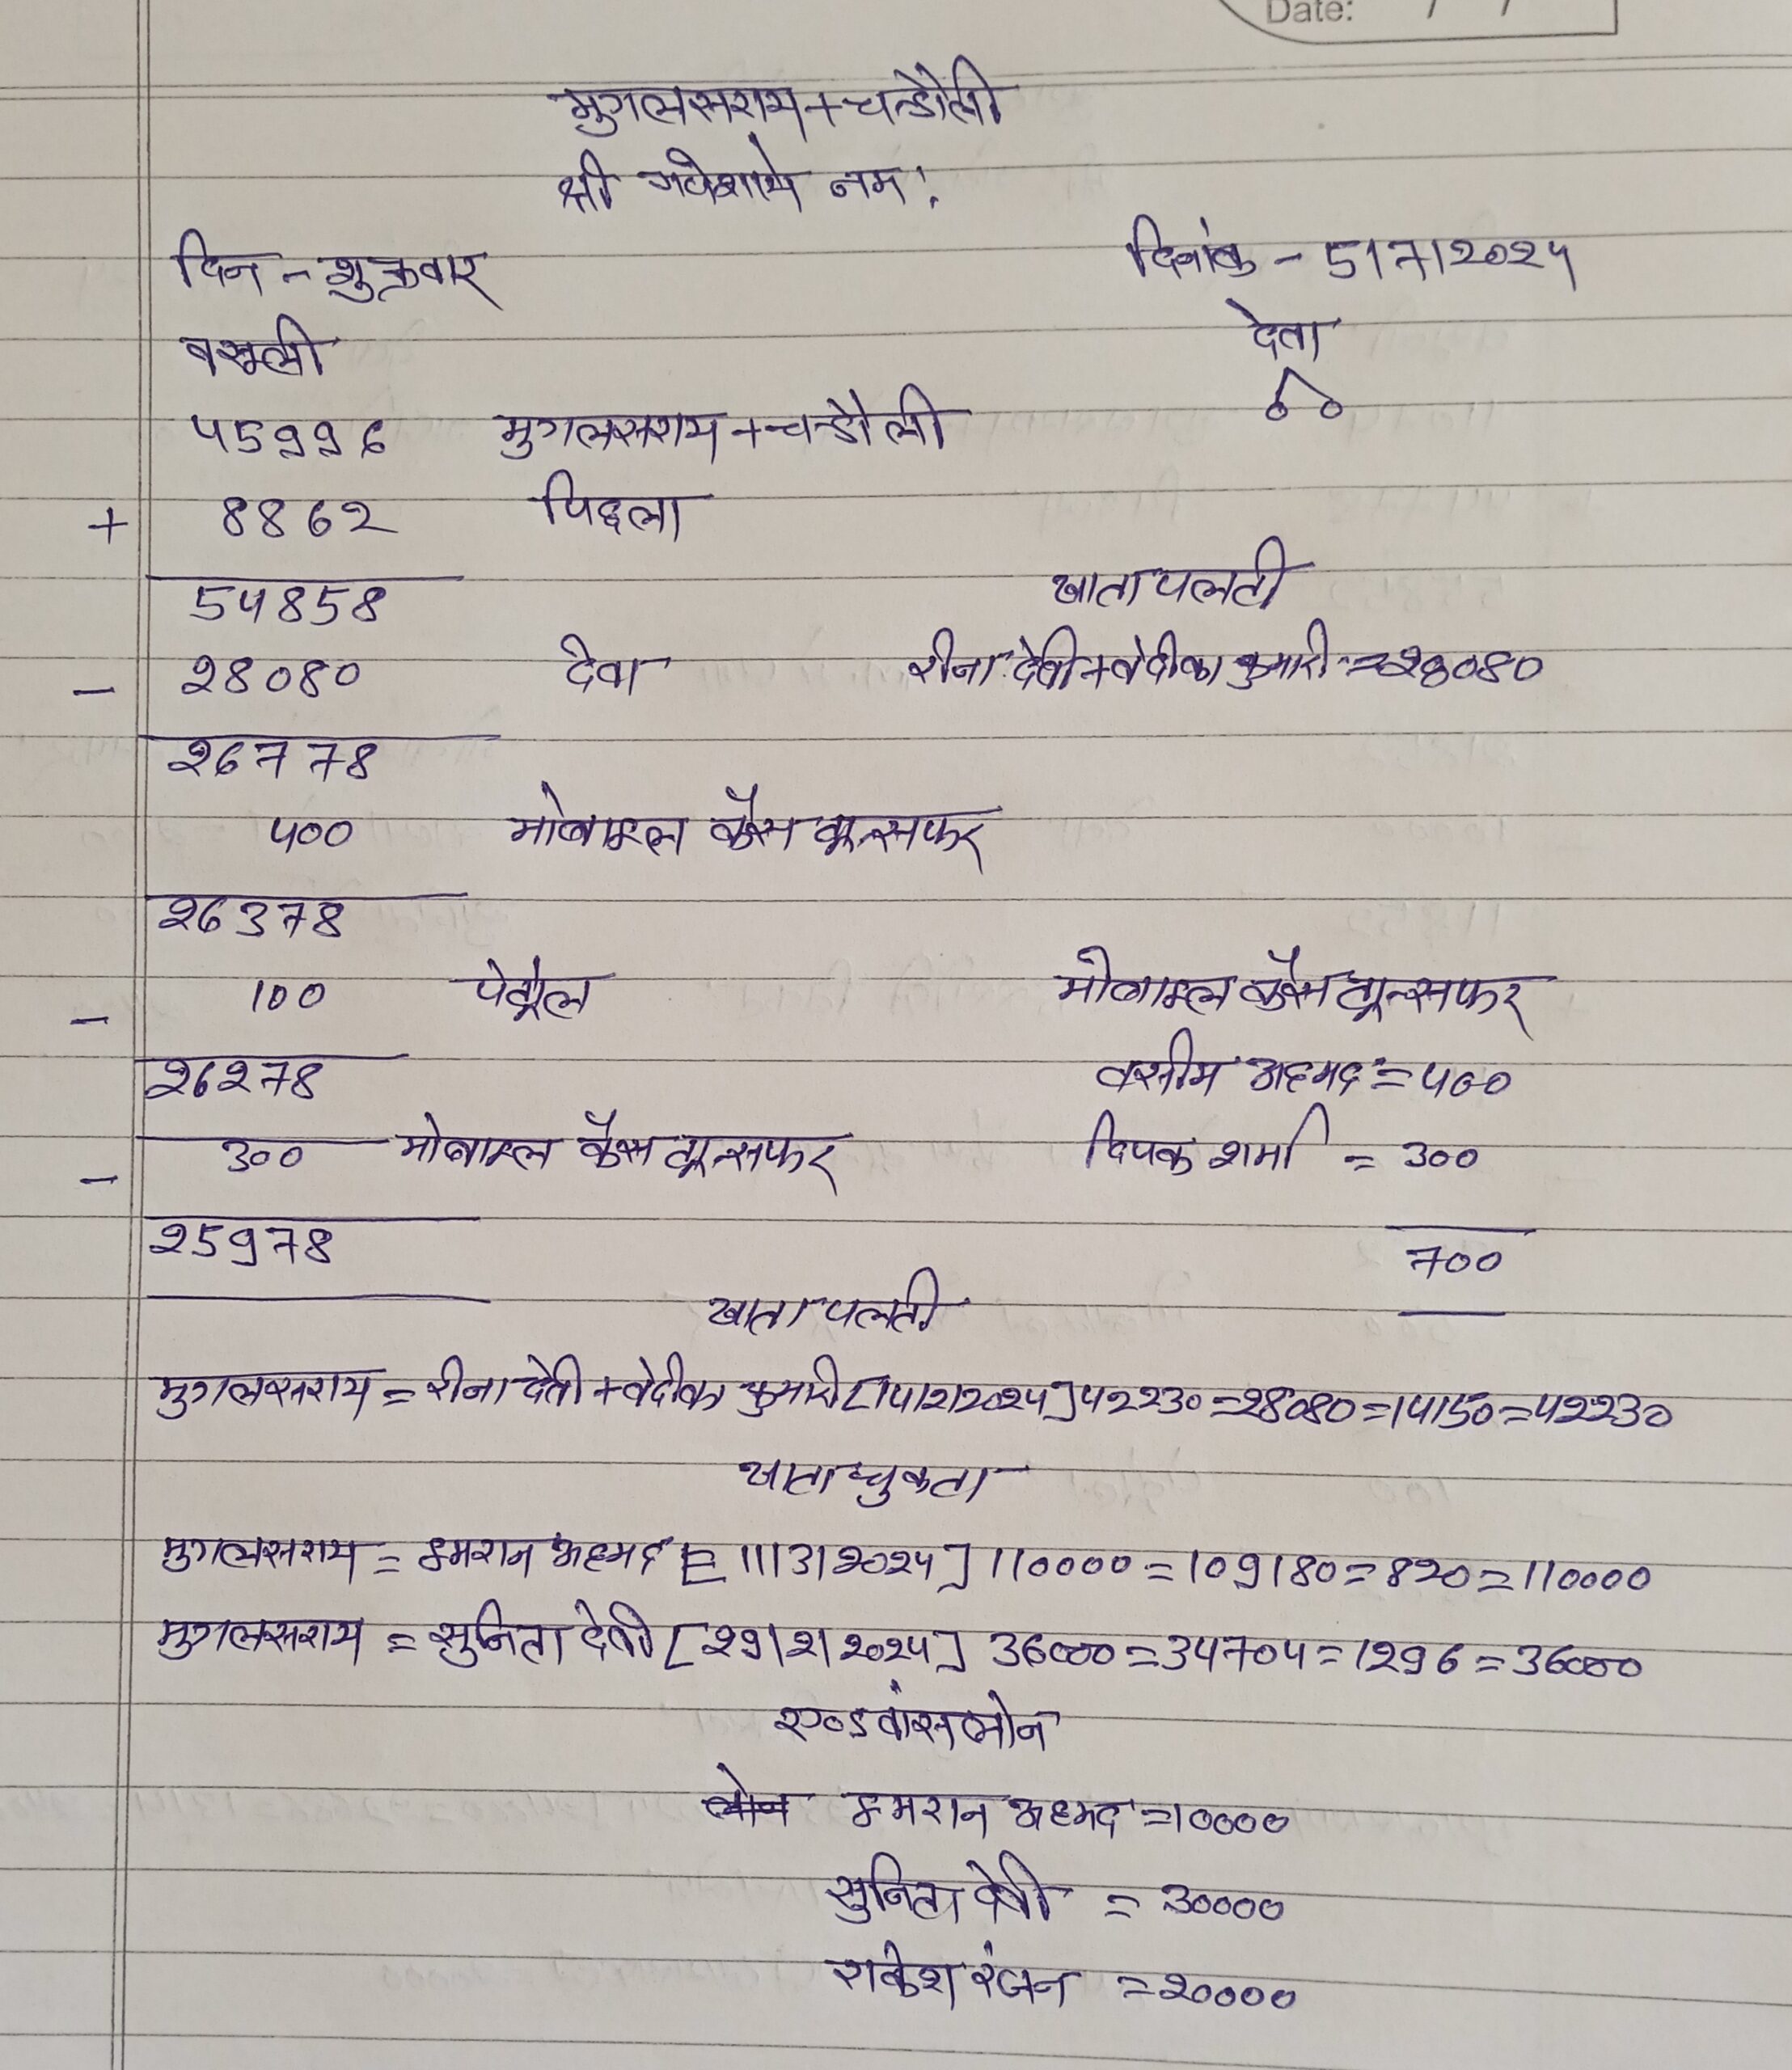 Date: / /
मुगलसराय + चन्डौली
श्री गणेशाये नम:
दिन - शुक्रवार दिनांक - 5/7/2024
वसूली देवा
45996 मुगलसराय + चन्डौली
+ 8862 पिछला
54858 खाता पलटी
- 28080 देवा रीना देवी + वेदीका कुमारी = 28080
26778
400 मोबाइल कैस ट्रान्सफर
26378
- 100 पेट्रोल मोबाइल कैस ट्रान्सफर
26278 वसीम अहमद = 400
- 300 मोबाइल कैस ट्रान्सफर दिपक शर्मा = 300
25978 700
खाता पलटी
मुगलसराय = रीना देवी + वेदीका कुमारी [14/2/2024] 42230 = 28080 = 14150 = 42230
खाता चुकता
मुगलसराय = इमरान अहमद [11/3/2024] 110000 = 109180 = 820 = 110000
मुगलसराय = सुनिता देवी [29/2/2024] 36000 = 34704 = 1296 = 36000
एडवांस लोन
लोन इमरान अहमद = 10000
सुनिता देवी = 30000
राकेश रंजन = 20000